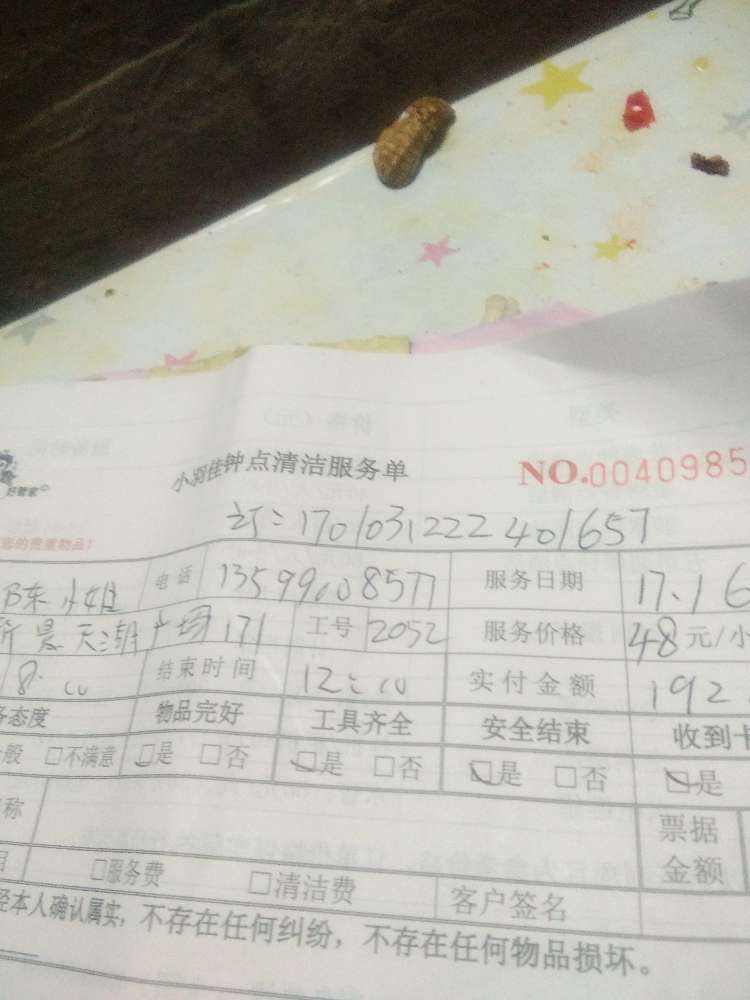 小羽佳钟点清洁服务单 NO.0040985
好管家
您的贵重物品!
订:1701031222401657
陈小姐 电话 13599008577 服务日期 17.16
景天湖广场171 工号 2052 服务价格 48元/小
8:00 结束时间 12:00 实付金额 192
务态度 物品完好 工具齐全 安全结束 收到卡
般 □不满意 □是 □否 □是 □否 □是 □否 □是
称 票据金额
□服务费 □清洁费 客户签名
经本人确认属实,不存在任何纠纷,不存在任何物品损坏。